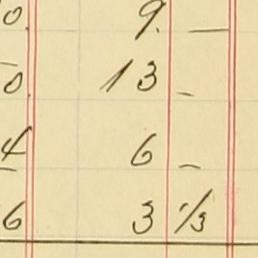 0. 9. —
0. 13 –
4 6 –
6 3 1/3